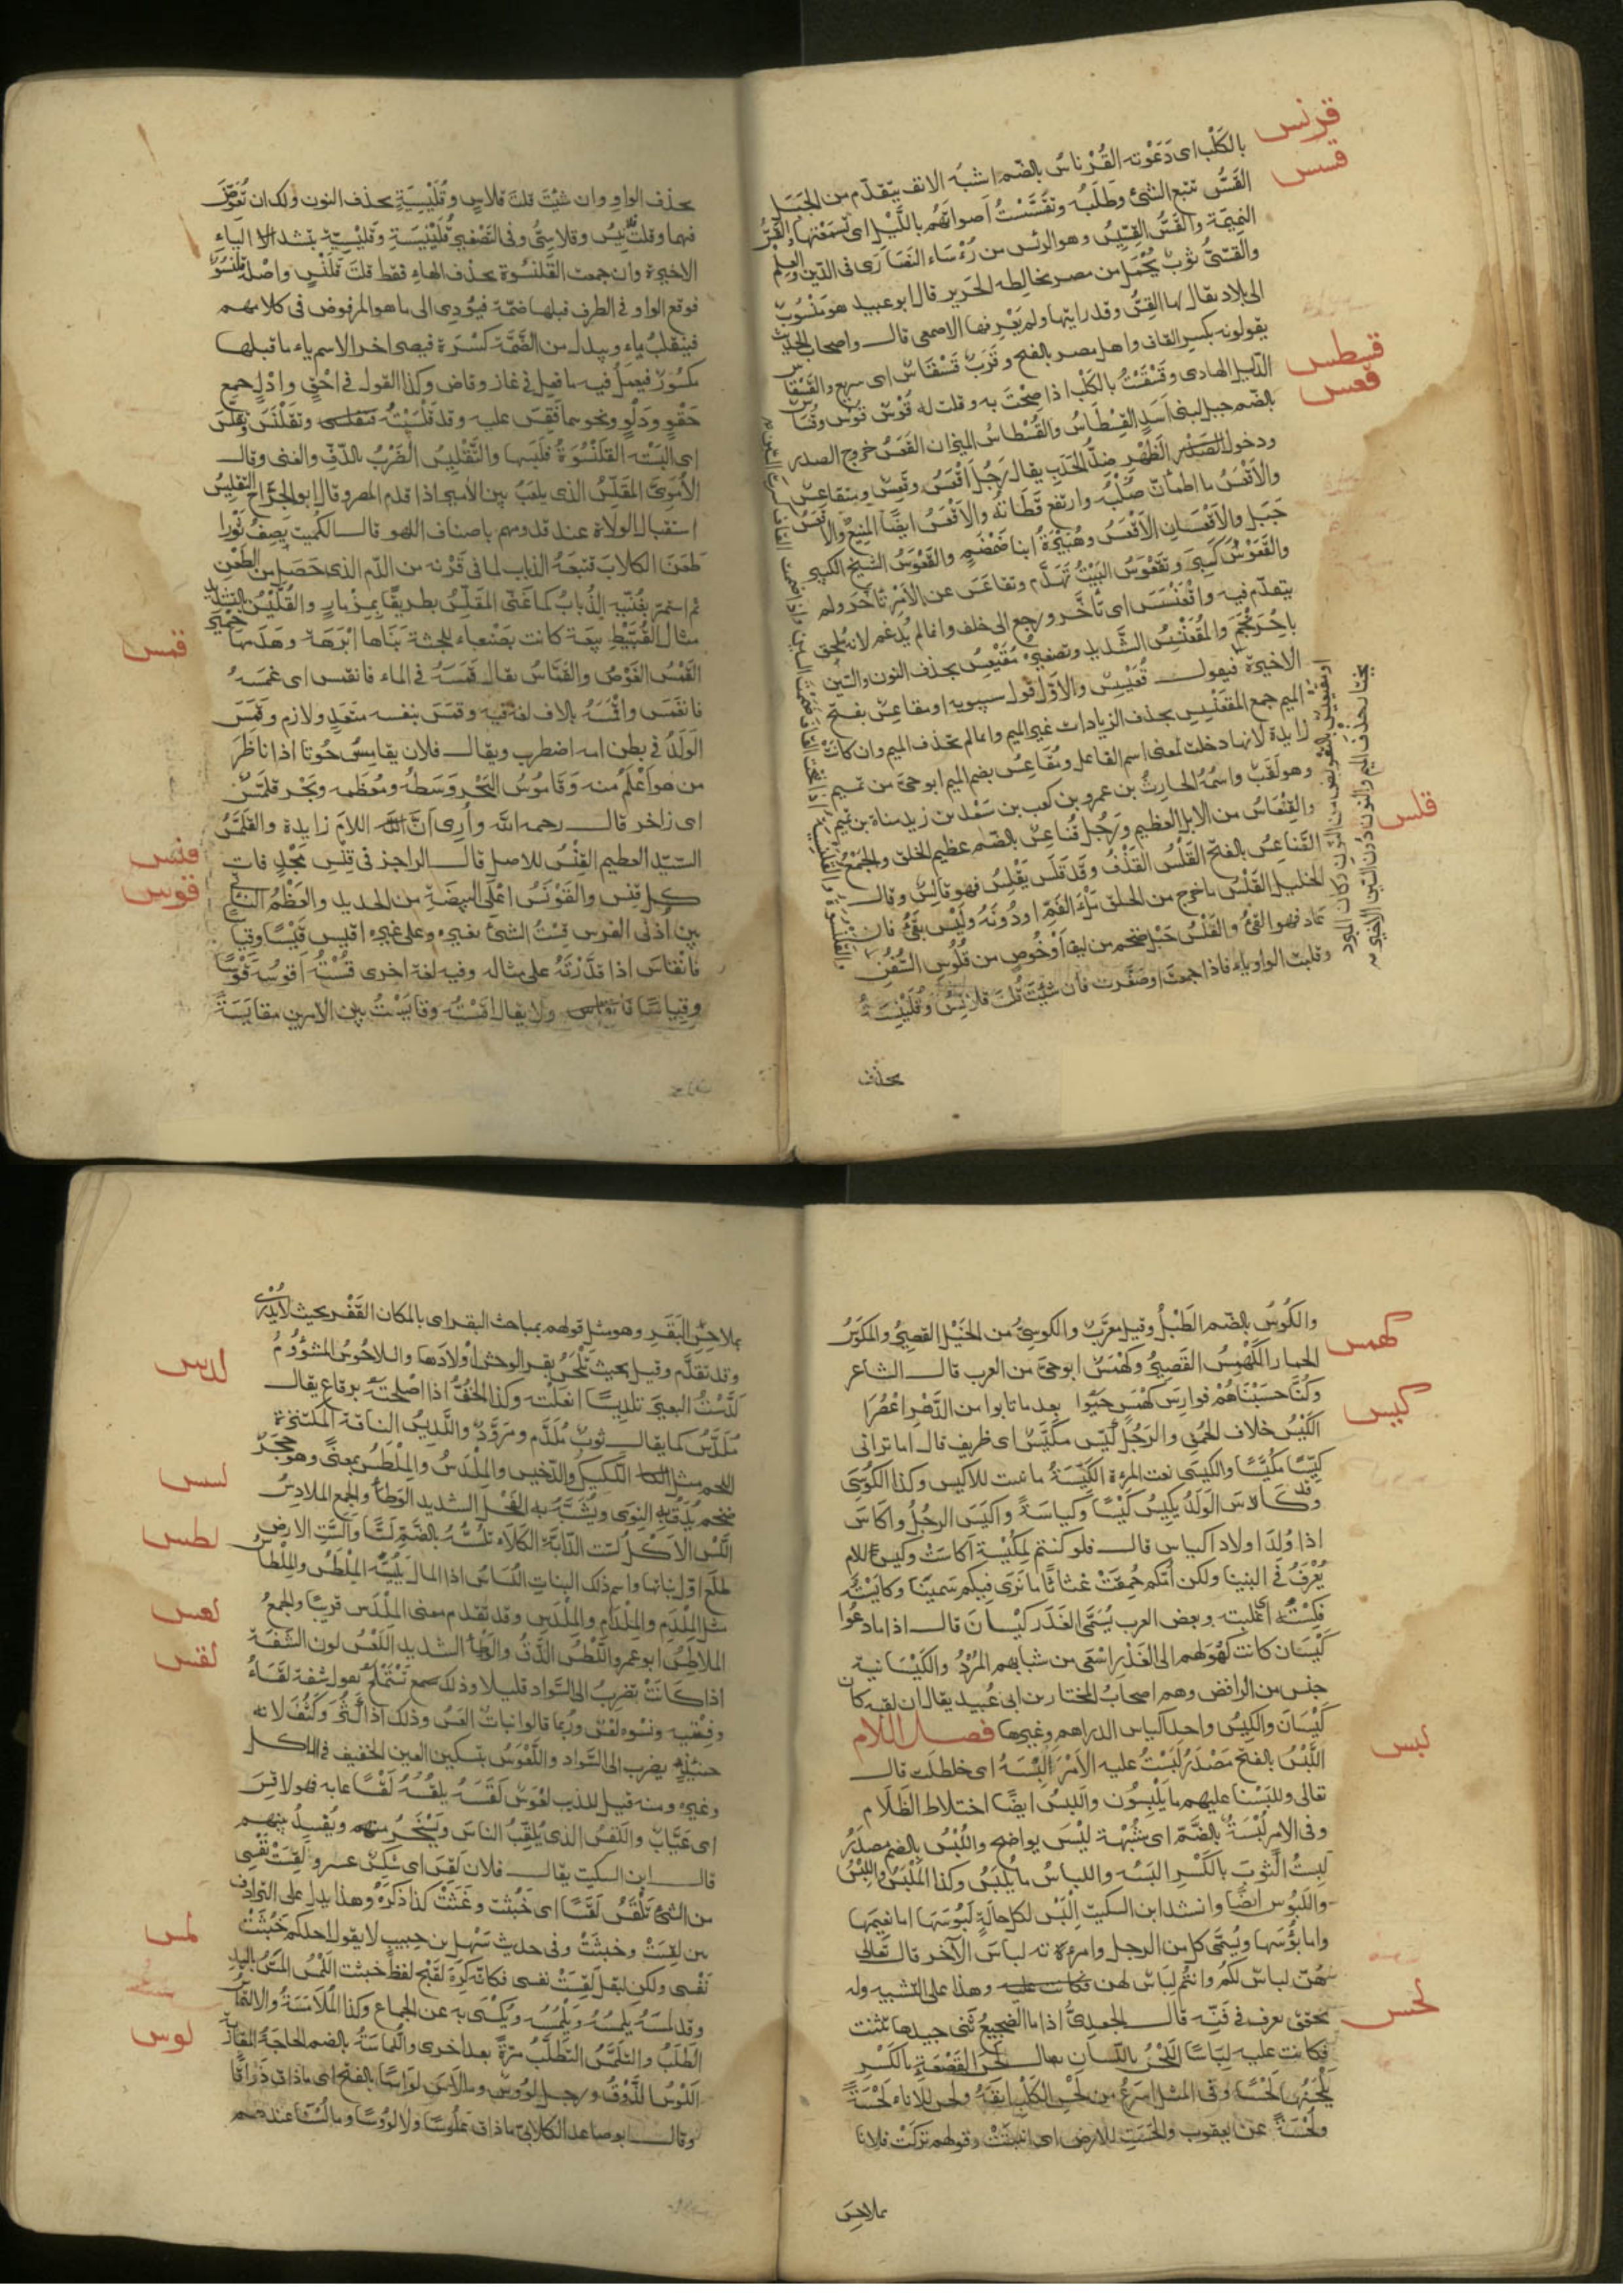 قرنس
قسس
بالكَلْب اى دَعَوْته القُرْناسُ بالضّم اشبَهُ الانف يتقدّم من الجَبَل
القَسُّ تتبع الشئ وطَلَبُه وتقسَّسْتُ أصواتَهُم باللَّيْلِ اى تسمّعتها والقَسُّ
النميمَة والقَسُّ القِسِّيسُ وهو الرئيس من رُؤسَاء النصَارَى فى الدّين والعِلم
والقَسّىُّ ثوبٌ يُحْمَلُ من مصر يخالطه الحَرير قال ابو عبيد هو مَنْسُوبٌ
الى بلاد يقال لها القَسُّ وقد رايتها ولم يَعْرِفها الاصمعى قال واصحاب الحديث
يقولونه بكسر القاف واهل مصر بالفتح وقَرَبٌ قَسْقَاسٌ اى سريع والقَسْقَاسُ
قسطس
قعس
الدّليل الهادى وقَسْقَسْتُ بالكَلْب اذا صِحْتَ به وقلت له قُوْس قوس وقُسَاسٌ
بالضّم جبل لبنى أسَدٍ القِسْطَاسُ والقُسْطاسُ الميزان القَعَسُ خروج الصدر
ودخول الظَهْرِ ضِدُّ الحَدَبِ يقال رَجُلٌ اَقْعَسُ وقَعِسٌ ومتقاعِسٌ
والاَقْعَسُ ما اطمانّ صُلْبُه وارتفع قَطَاتُه والاَقْعَسُ ايضًا المنِيعُ والاقعَسُ
جَبَل والاَقْعَسَانِ الاَقْعَسُ وهُبَيْرَةُ ابنا ضَمْضَمٍ والقَعْوَسُ الشيخ الكبير
وتقَعْوَسَ البَيْتُ تَهَدَّم وتقاعَسَ عن الاَمْرِ تَاخَّرَ ولم
يتقدّم فيه واقْعَنْسَسَ اى تَأخَّر ورجع الى خلف وانما لم يُدغم لانه مُلحق
باحْرَنْجَمَ والمُقْعَنْسِسُ الشَّديد وتصغيرُه مُقَيْعِسٌ بحذف النون والسّين
الاخيرة فيقول قُعَيْسِسٌ والاوّل قول سيبويه او مقاعِسُ بفتح
الميم جمع المقْعَنْسِسِ بحذف الزيادات غير الميم وانما لم تحذف الميم وان كانَتْ
زايدة لانها دخلت لمعنى اسم الفاعل ومُقَاعِسٌ بضم الميم ابو حىّ من تميم
وهو لَقَبٌ واسمُهُ الحَارِثُ بن عمرو بن كعب بن سَعْد بن زيد مناة بن تميم
والقِنْعَاسُ من الابل العظيم ورَجُلٌ قُناعِسٌ بالضّم عظيم الخلق والجَمْعُ
قلس
القَنَاعِسُ بالفتح القَلْسُ القَذْفُ وقَد قَلَسَ يَقْلِسُ فهو قالِسٌ وقال
الخليل القَلْسُ ما خرج من الحلق مِلْءَ الفَمِ او دُونَهُ ولَيْسَ بقَئٍ فان
عَاد فهو القئُ والقَلْسُ حَبْلٌ ضخم من ليف أوْ خُوصٍ من قُلُوس السُّفُنِ
وقلبت الواو ياء فاذا جمعتَ او صَغَّرت فان شئتَ قلتَ قلانِسُ وقُلَيْنِسَةٌ
بحذف
بحذف الواو وان شئتَ قلتَ قلاسٍ وقُلَيْسِيَةٍ بحذف النون ولك ان تُعَوِّضَ
فيهما وقلتَ قلانيسُ وقلاسِىُّ وفى التَصْغير قُلَيْنِيسَةٍ وقُلَيْسِيّةٍ بتشديد الياء
الاخيرة وان جمعت القَلنسُوة بحذف الهاء فقط قلتَ قَلَنْسٍ واصله قَلَنْسُوٌ
فوقع الواو فى الطرف قبلها ضَمّة فيُؤدِى الى ما هو المرفوض فى كلامهم
فينقلبُ ياء ويبدل من الضَّمَّة كَسْرَة فيصير اخر الاسم ياء ما قبلها
مكسُورٌ فيعمل فيه ما فعل فى غازٍ وقاض وكذا القول فى اَحْقٍ وادْلٍ جمع
حَقْوٍ ودَلْوٍ ونحوهما فقِسْ عليه وقد قَلْسَيْتُه فتقلسى وتقَلْنَسَ وتقلَّسَ
اى البَسْتُه القلَنْسُوَةُ فلَبسَها والتَّقْلِيسُ الضَّرْبُ بالدّفِّ والغنى وقال
الاُمَوىُّ المُقَلِّسُ الذى يلعَبُ بين الأمير اذا قدم المصر وقال ابو الجَرّاحِ التقليسُ
استقبال الولاة عند قدومهم باصناف اللهو قال الكُمَيت يَصِفُ ثَوْرا
طَعَنَ الكلابَ فتبعَهُ الذباب لما فى قَرْنه من الدّم الذى حَصَل من الطَعْنِ
ثم استمرّ يغُنّيه الذُبابُ كما غَنَّى المُقَلِّسُ بطريقًا بِمزْمارٍ والقُلَّيْسُ بالتشديد
قمس
مثال القُبَّيْطِ بيعَة كانت بصَنعاء للحبشة بَنَاها ابْرَهَة وهَدَمَها حِمْيَرُ
القَمْسُ الغَوْصُ والقَمّاسُ يقال قَمَسَهُ فى الماء فانقمس اى غَمَسَهُ
فانغَمَسَ واقْمَسَهُ بالالف لغةٌ فيه وقَمَسَ بنفسه متعَدٍ ولازم وقَمَسَ
الوَلَدُ فى بطن امه اضطرب ويقال فلان يقامِسُ حُوتا اذا ناظرَ
من هو اَعْلَمُ منه وقَامُوسُ البَحْر وَسَطهُ ومُعْظمه وبَحْر قَلَمَّسٌ
اى زاخر قال رحمه الله وارى اَنّ اللامَ زايدة والقلَمَّسُ
قنس
السّيّد العظيم القِنْسُ للاصل قال الراجز فى قِنْسِ مَجْدٍ فات
قوس
كل قِنْس والقَوْنَسُ اعْلَى البيضَةِ من الحديد والعَظْمُ الناتئ
بين اُذنَى الفَرَس قِسْتُ الشئ بغيره وعلى غيره اقيس قَيْسًا وقياسًا
فانقاسَ اذا قَدَّرْتَهُ على مثاله وفيه لغة اخرى قُسْتُه اَقوسُه قَوْسًا
وقِياسًا ولا يقال اقَسْتُه وقايَسْتُ بين الامرين مقايَسَةً
كهمس
والكُوسُ بالضّم الطَبْلُ وقيل معَرَّبٌ والكوسِىُّ من الخيْلِ القصيرُ والمكوَّسُ
الحمار الكَهْمَسُ القَصيرُ وكَهْمَسٌ ابو حىّ من العرب قال الشاعر
كيس
وكُنّا حَسبْنَاهُمْ فوارِسَ كَهْمَسٍ حَيُوا بعد ما تابوا من الدَّهْرِ اعْصُرَا
الكَيْسُ خلاف الحُمْق والرَجُل كَيّس مكيَّسٌ اى ظريف قال اما ترانى
كيّسًا مُكَيَّسًا والكيسَى نعت المرءة الكَيِّسَةُ تانيث للاكيس وكذا الكُوسَى
وقد كَاسَ الوَلَدُ يكيسُ كَيْسًا وكياسَةً واكْيَسَ الرجُلُ واكاسَ
اذا وُلدَا اولاد اكياس قال فلو كنتم لِمُكْيِسةٍ اكاسَتْ وكيس الام
يُعْرَفُ فى البنينا ولكن اُمّكم حُمِقَتْ فجئتم غثاثًا ما نَرَى فيكم سَمينًا وكايَسْتُه
فكِسْتُه اى غلبته وبعض العرب يُسَمّى الغَدَر كَيْسَان قال اذا ما دعُوا
كَيْسَان كانت كهُولهم الى الغَدْرِ اسْعَى من شبابهم المُرْدُ والكَيْسَانية
جنس من الرافض وهم اصحابُ المختار بن ابى عُبيد يقال ان لقبه كان
لبس
كَيْسَان والكيسُ واحد اكياس الدراهم وغيرها فصل اللام
اللَّبْسُ بالفتح مَصْدَرُ لَبَسْتُ عليه الاَمْرَ اَلْبِسُهُ اى خلطت قال
تعالى وللبَسْنا عليهم ما يَلْبِسُون واللَّبسُ ايضًا اختلاط الظَلَام
وفى الامر لُبْسَةٌ بالضَّم اى شُبْهَة ليْسَ بواضح واللُّبْسُ بالضم مصدَرُ
لبِستُ الثوبَ بالكَسْر البَسُه واللباسُ ما يُلْبَسُ وكذا المَلْبَسُ واللِبْسُ
واللَبُوس ايضًا وانشد ابن السكيت اِلْبَسْ لكل حالةٍ لَبُوسَهَا اما نعيمَها
واما بؤُسَها ويُسمَّى كل من الرجل وامرءته لباسَ الآخر قال تَعَالى
هُنّ لباسٌ لكم وانتُم لبَاسٌ لهن وهذا على التشبيه وله
لحس
تحقيق يعرف فى فَنّه قال الجعدىُّ اذا ما الضجيعُ ثنى جيدها تثنت
فكانت عليه لِبَاسًا اللَّحْسُ باللّسان يقال لَحِسَ القَصْعَة بالكَسْرِ
يَلْحَسُها لَحْسًا وفى المثل اسرَعُ من لَحْسِ الكَلْبِ انفَهُ ولحِسَ الاناء لَحْسَةً
ولُحْسَةً عن يعقوب والحَسَتِ الارض اى انبتَتْ وقولهم تركتُ فلانا
بملاحِسِ
بملاحِسِ البَقَرِ وهو مثل قولهم بمباحث البقر اى بالمكان القَفْر بحيث لا يُدْرَى
لدس
وقد تقدَّم وقيل بحيث تَلْحَسُ بقر الوحش اوْلادَهَا واللاحُوسُ المشؤُومُ
لَدَّسْتُ البعيرَ تلديسًا انعَلته وكذا الخُفّ اذا اصْلحتَهُ برِقاع يقال
مُلَدَّسٌ كما يقال ثوبٌ مُلَدَّم ومُرَدَّمٌ واللَّديسُ الناقة المكتنزة
لسس
اللحم مثل اللكيكِ والدّخيسِ والمِلْدَسُ والمِلْطَسُ بمعنًى وهو حَجَرٌ
ضخم يُدَقّ به النوَى ويُشبَّه به الفَحْلُ الشديد الوَطأ والجمع الملادِسُ
لطس
اللَّسُّ الاَكْلُ لسّت الدّابّة الكَلَاءَ تلُسُّهُ بالضّمّ لَسًّا والَسَّتِ الارض
طلَعَ اوّل نباتها واسم ذلك النبات اللُّسَاسُ
لعس
مثل المِلْدَمِ والمِلْدَامِ والمِلْدَسِ وقد تقدم معنى المِلْدَس قريبًا والجمعُ
لقس
الملاطِسُ ابو عمرو اللَّطْسُ الدَّقُّ والوَطأ الشديد اللَعَسُ لون الشَفَة
اذا كَانَتْ تضرِبُ الى السَّواد قليلا وذلك تَسْتَمْلِحُ يقول شفة لَعْسَاءُ
وفِتْيَةٌ ونسْوة لُعْسٌ ورُبما قالوا نباتٌ العَسُ وذلك اذا كَثُرَ وكَثُفَ لانه
حينئِذٍ يضرب الى السَّواد واللَّعْوَسُ بتسكين العين الخفيف فى الاكل
وغيره ومنه قيل للذيب لَعْوَسٌ لَقَسَهُ يلقُسُهُ لَقْسًا عابه فهو لاقِسٌ
اى عَيّابٌ واللَقسُ الذى يُلَقِّبُ الناسَ ويَسْخَرُ منهم ويُفْسِدُ بينهم
قال ابن السكيت يقال فلان لَقِسٌ اى شَكِسٌ عسر ولَقِسَتْ نَفْسِى
من الشئ تَلْقَسُ لَقَسًا اى خَبُثَت وغَثَتْ كذا ذَكَرَهُ وهذا يدل على الترادف
لمس
بين لقِسَتْ وخبثَتْ وفى حديث سَهْل بن حبيبٍ لا يقول احدكم خَبُثَتْ
نَفْسى ولكن ليقل لَقِسَتْ نفسى فكانّه كَرِهَ لقُبْح لفظ خبثت اللَّمْسُ المَسُّ باليد
وقد لمَسَهُ يلمُسُهُ ويَلْمِسُه ويُكْنَى به عن الجماع وكذا المُلَامَسَةُ والالتماس
لوس
الطَلَبُ والتلَمُّسُ التَّطَلُّبُ مرّةً بعد اخرى واللُّمَاسَةُ بالضم الحاجة المقاربة
اللَّوْسُ الذَّوْقُ ورجل لؤُوسٌ وما لاَسَ لَوَاسًا بالفتح اى ما ذاق ذَوَاقًا
وقال ابو صاعد الكلابىّ ما ذاق عَلُوسًا ولا لَؤوسًا وما لُسْنا عندهم